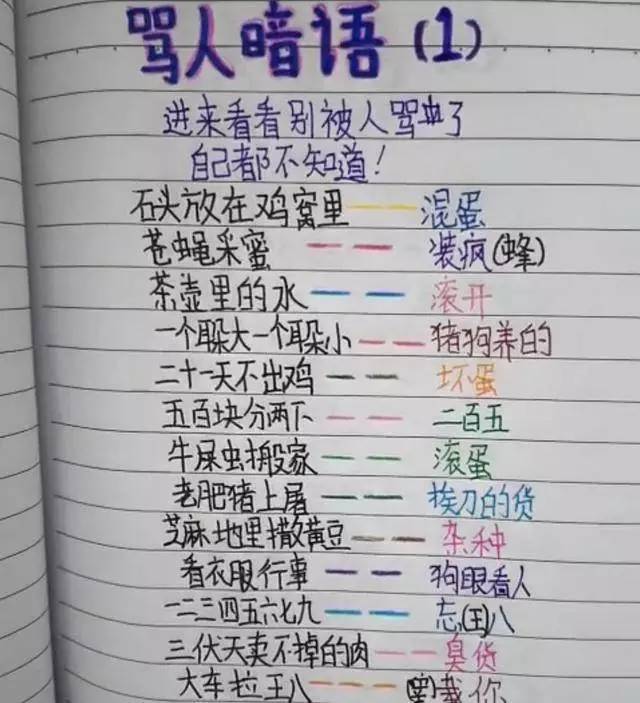 骂人暗语(1)
进来看看别被人骂了
自己都不知道!
石头放在鸡窝里——混蛋
苍蝇采蜜——装疯(蜂)
茶壶里的水——滚开
一个耳朵大一个耳朵小——猪狗养的
二十一天不出鸡——坏蛋
五百块分两下——二百五
牛屎虫搬家——滚蛋
老肥猪上屠——挨刀的货
芝麻地里撒黄豆——杂种
看衣服行事——狗眼看人
一二三四五六七九——忘(王)八
三伏天卖不掉的肉——臭货
大车拉王八——载你